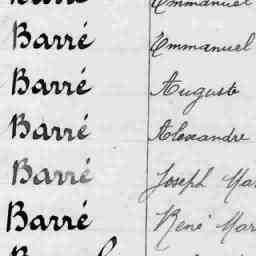 Barré Emmanuel
Barré Emmanuel
Barré Auguste
Barré Alexandre
Barré Joseph Mar
Barré René Mar